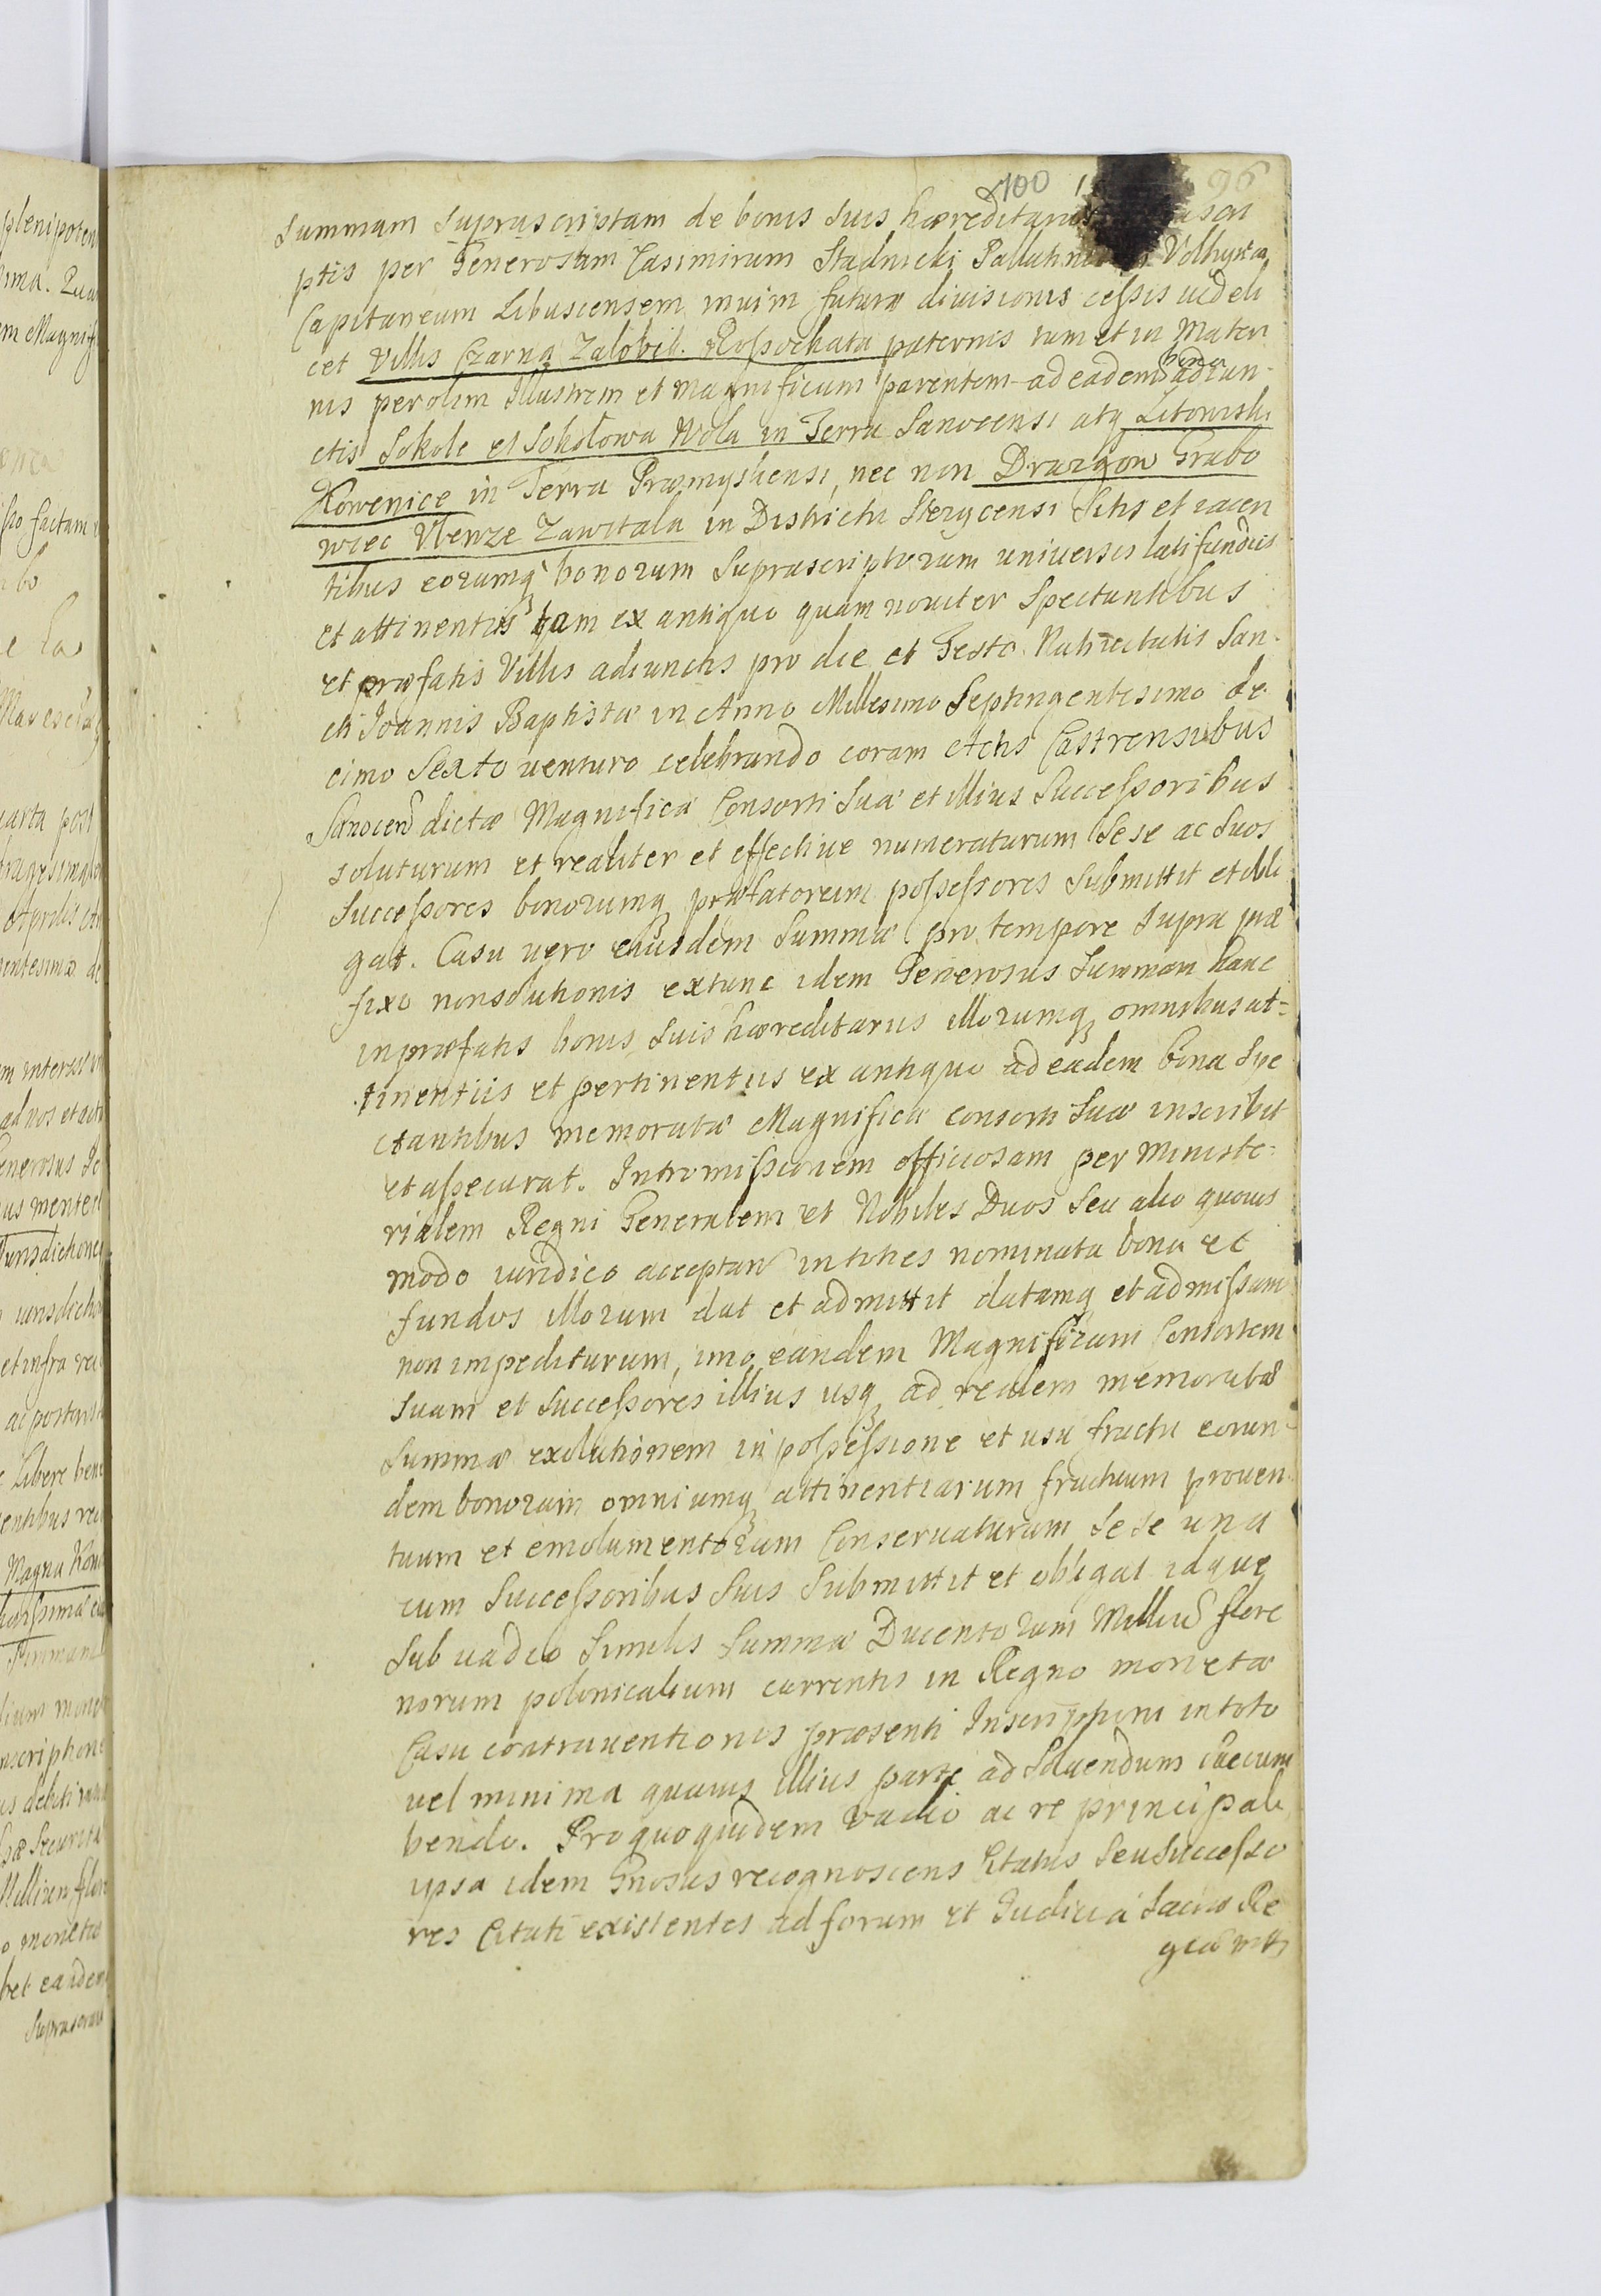 100 96
Summam Suprascriptam de bonis Suis hæreditariis
ptis per Generosum Casimirum Stadnicki Pallatini Volhyniæ
Capitaneum Libuscensem in uim futuræ diuisionis cessis uideli
cet Villis Czarna Zalobik. Rossochata paternis tum et in Mater
nis per olim Illustrem et Magnificum parentem ad eadem bona adiun-
ctis Sokole et Sokołowa Wola in Terra Sanocensi atq Litowiski
Rowenice in Terra Præmysliensi, nec non Drazgow Grabo
wiec Vlenze Zawitala in Districtu Stezycensi Sitis et iacen
tibus eorumq bonorum Suprascriptorum uniuersis latifundiis
et attinentiis tam ex antiquo quam nouiter Spectantibus
et præfatis Villis adiunctis pro die et Festo Natiuitatis San-
cti Joannis Baptistæ in Anno Millesimo Septingentesimo de
cimo Sexto uenturo celebrando coram Actis Castrensibus
Sanocen dictæ Magnificæ Consorti Suæ et illius Successoribus
soluturum et realiter et effectiue numeraturum Se se ac Suos
Successores bonorumq præfatorum possessores Submittit et obli
gat. Casu uero eiusdem Summæ pro tempore Supra præ
fixo non solutionis extunc idem Generosus Summam hanc
in præfatis bonis Suis hæreditariis illorumq omnibus at-
tinentiis et pertinentiis ex antiquo ad eadem bona Spe
ctantibus memoratæ Magnificæ consorti Suæ inscribit
et assecurat. Intromissionem officiosam per Ministe-
rialem Regni Generalem et Nobiles Duos Seu alio quouis
modo iuridico acceptan in toties nominata bona et
fundos illorum dat et admittit datamq et admissam
non impediturum, imo eandem Magnificam Consortem
Suam et Successores illius usq ad realem memoratæ
Summæ exolutionem in possessione et usu fructu eorun-
dem bonorum omniumq attinentiarum fructuum prouen
tuum et emolumentorum Conseruaturum Se se una
cum Successoribus Suis Submittit et obligat idque
Sub uadio Similis Summæ Ducentorum Milliu flore
norum polonicalium currentis in Regno monetæ
Casu contrauentionis præsenti Inscriptioni in toto
uel minima quauis illius parte ad Soluendum Succum
bendo. Pro quo quidem Vadio ac re principali
ipsa idem Gnosus recognoscens Citatus Seu Successo
res Citati existentes ad forum et Judicia Sacræ Re
giæ Mtis